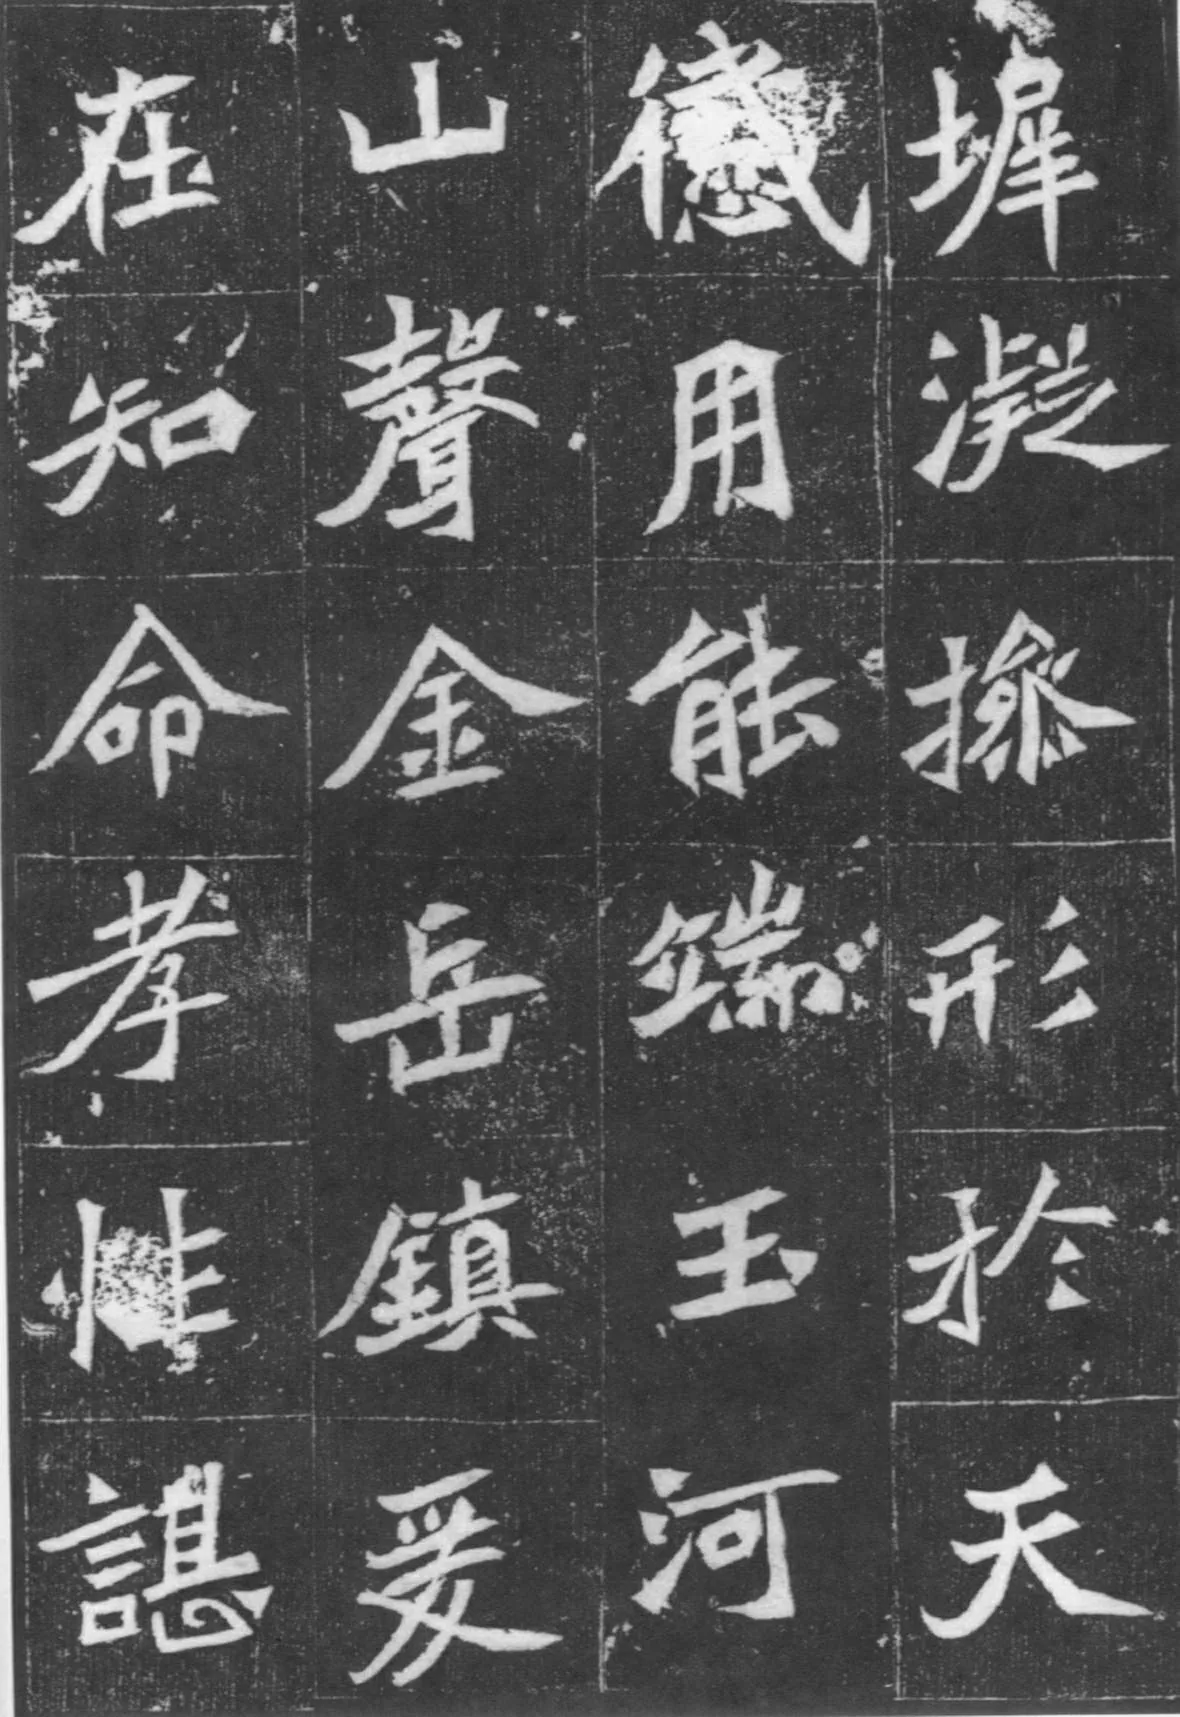 墀凝形於天
用能端玉河
山聲金岳鎮爰
在知命孝性諶